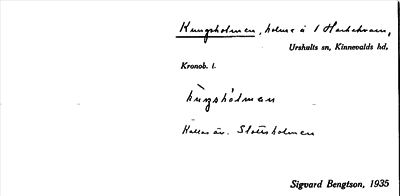 Kungsholmen, holme å 1 Harketrams,
Urshults sn, Kinnevalds hd,
Kronob. l.
kùŋshólman
Kallas äv. Slottsholmen
Sigvard Bengtson, 1935